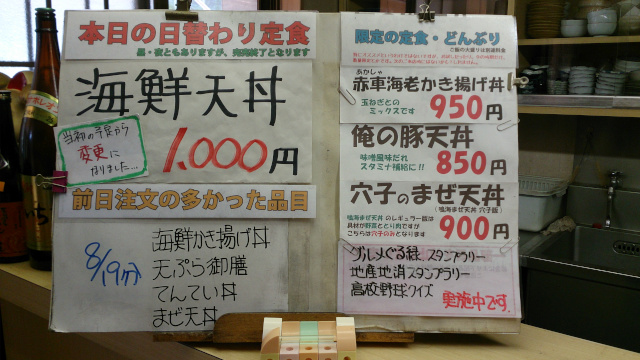 本日の日替わり定食
昼・夜ともありますが、完売終了となります
海鮮天丼
当初の予定から
変更に
なりました…
1,000円
前日注文の多かった品目
8/19(分)
海鮮かき揚げ丼
天ぷら御膳
てんてい丼
まぜ天丼
限定の定食・どんぶり
ご飯の大盛りは別途料金
あかしゃ
赤車海老かき揚げ丼
玉ねぎとの
ミックスです
950円
俺の豚天丼
味噌風味だれ
スタミナ補給に!!
850円
穴子のまぜ天丼
(鳴海まぜ天丼 穴子版)
鳴海まぜ天丼 のレギュラー版は
具材が野菜ととり肉ですが
こちらは穴子のみとなります
900円
グルメぐる録 スタンプラリー
地産地消スタンプラリー
高校野球クイズ
実施中です.